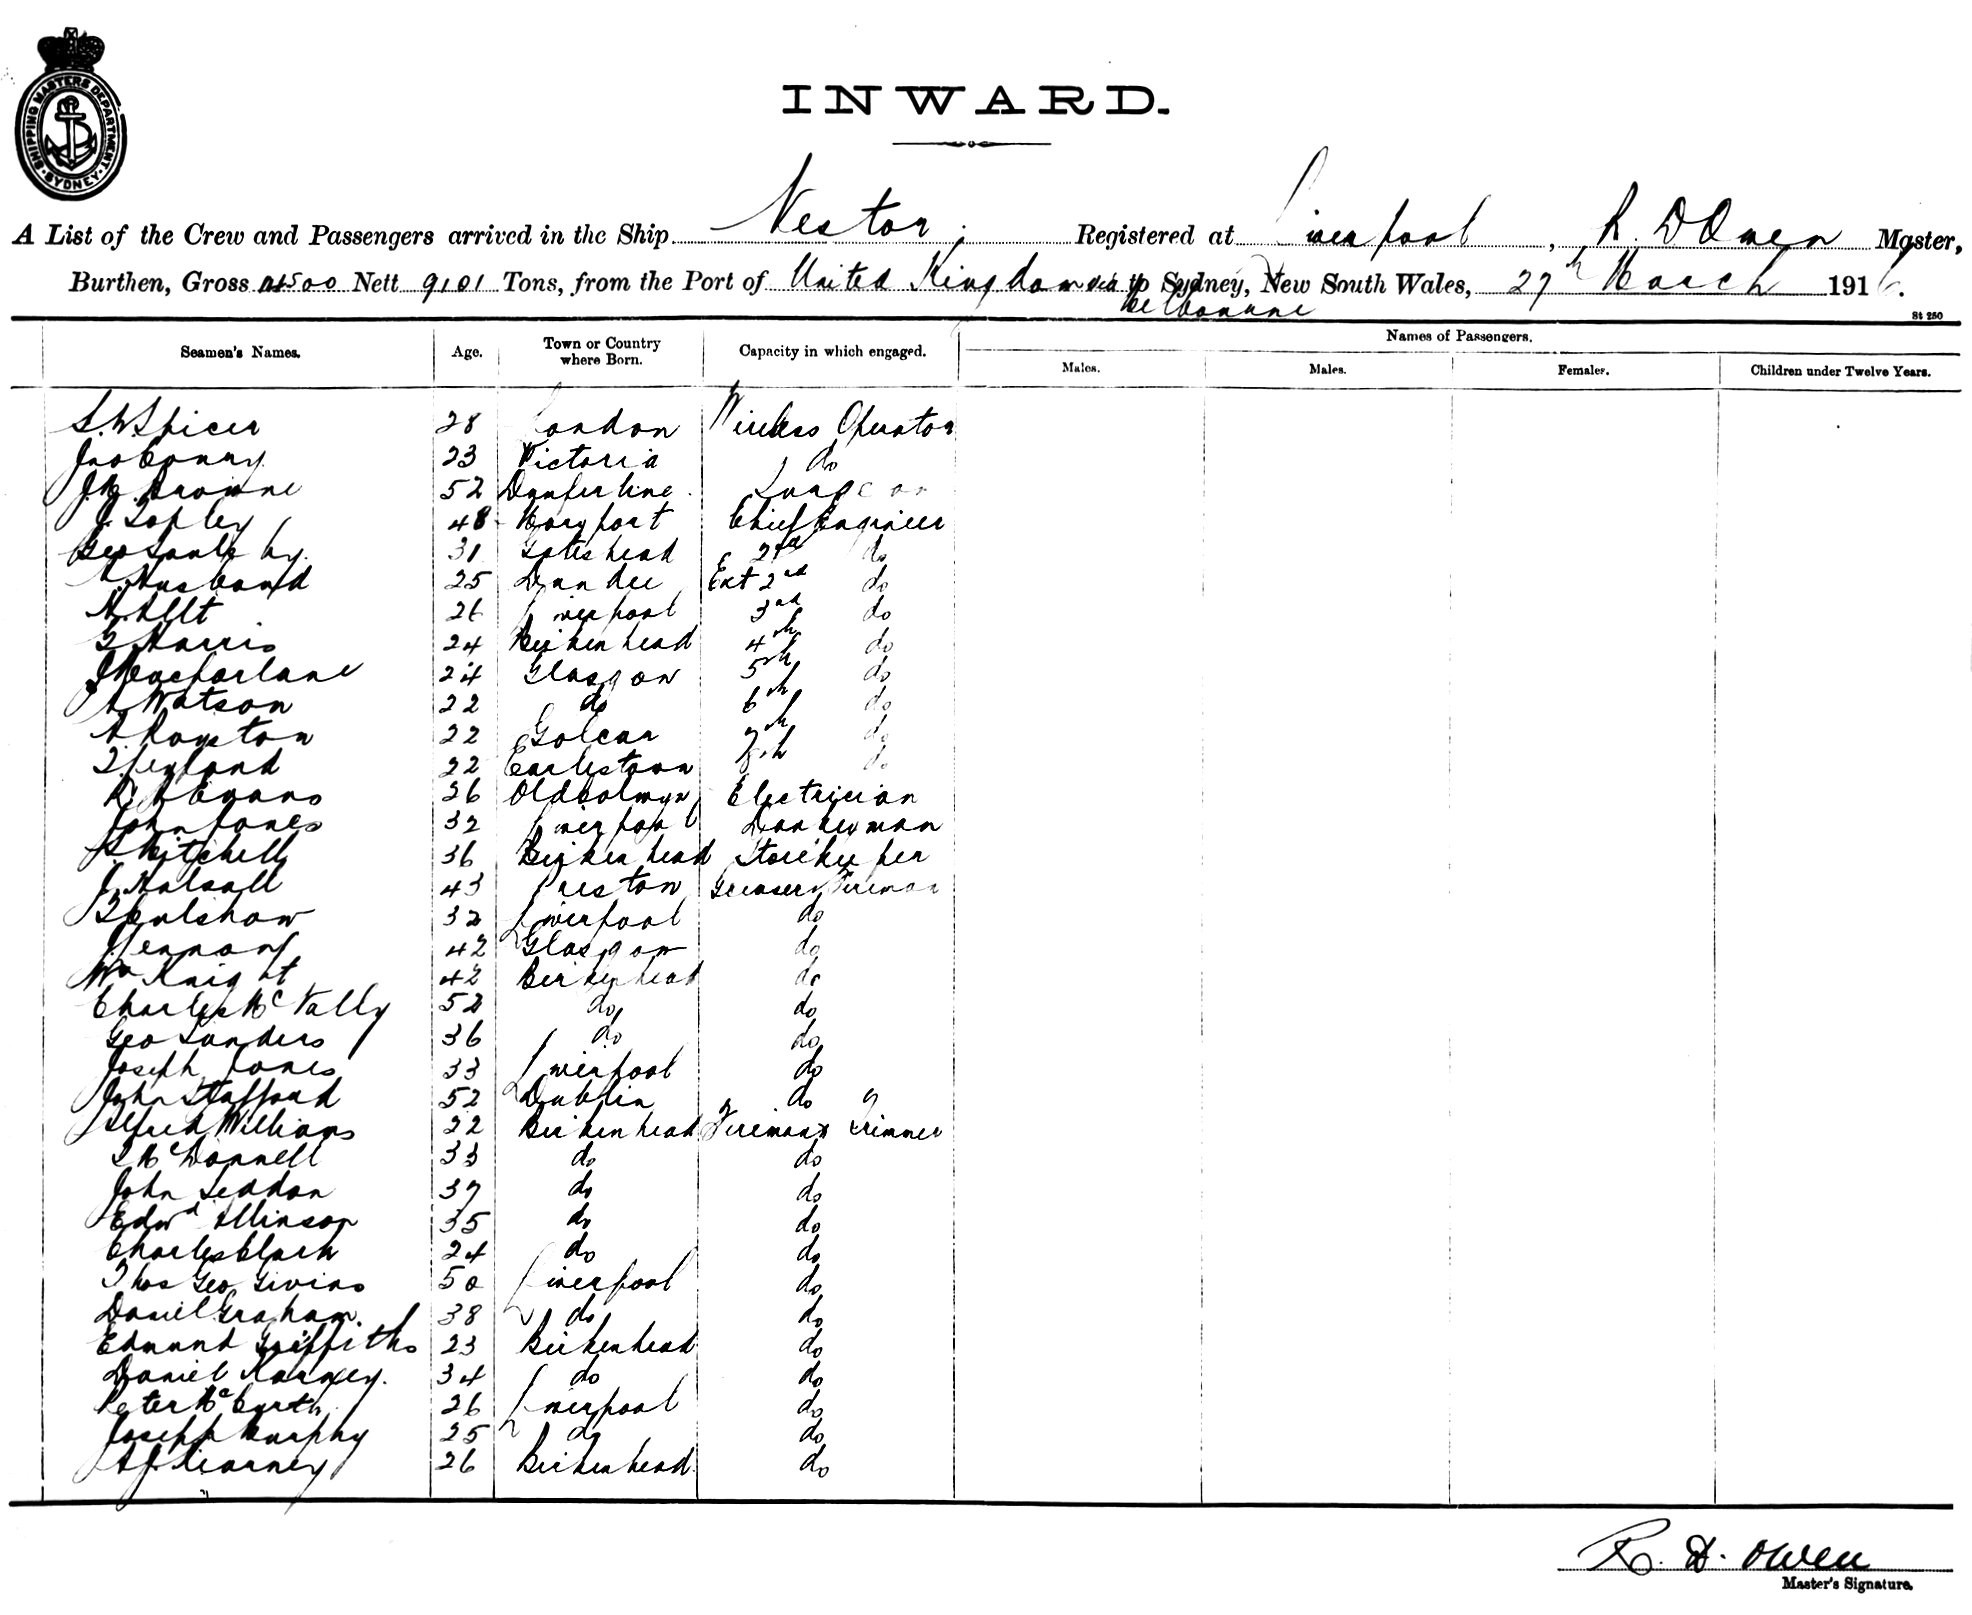 SHIPPING MASTERS DEPARTMENT
SYDNEY
INWARD.
A List of the Crew and Passengers arrived in the Ship Nestor. Registered at Liverpool, R. D Owen Master,
Burthen, Gross 14500 Nett 9101 Tons, from the Port of United Kingdom via to Sydney, New South Wales, 27th March 1916.
Melbourne
St 250
Seamen's Names. Age. Town or Country where Born. Capacity in which engaged. Names of Passengers.
Males. Males. Females. Children under Twelve Years.
S. W Spicer 28 London Wireless Operator
Jno Conry 23 Victoria do
J. M. Browne 52 Dunferline Surgeon
J. Topley 48 Maryport Chief Engineer
Geo 31 Gateshead 2nd do
A Husband 25 Dundee Ext 2nd do
A Allt 26 Liverpool 3rd do
T Harris 24 Birkenhead 4th do
J Macfarlane 24 Glasgow 5th do
A Watson 22 do 6th do
A Royston 22 Golcar 7th do
T Leyland 22 Earlestown 8th do
R H Evans 26 Old Colwyn Electrician
John Jones 32 Liverpool Donkeyman
S Mitchell 36 Birkenhead Storekeeper
J. Halsall 43 Preston Greaser & Fireman
T Culshaw 32 Liverpool do
J Lennon 42 Glasgow do
Wm Knight 42 Birkenhead do
Charles McNally 52 do do
Geo Sanders 36 do do
Joseph Jones 33 Liverpool do
John Stafford 52 Dublin do
Alfred Williams 22 Birkenhead Fireman & Trimmer
T McDonnell 33 do do
John Seddon 37 do do
Edwd Allinson 35 do do
Charles Clark 24 do do
Thos Geo Givins 50 Liverpool do
Daniel Graham. 38 do do
Edmund Griffiths 23 Birkenhead do
Daniel Karney. 34 do do
Peter McCarth 26 Liverpool do
Joseph Murphy 25 do do
A J. Kearney 26 Birkenhead do
R. D. Owen
Master's Signature.